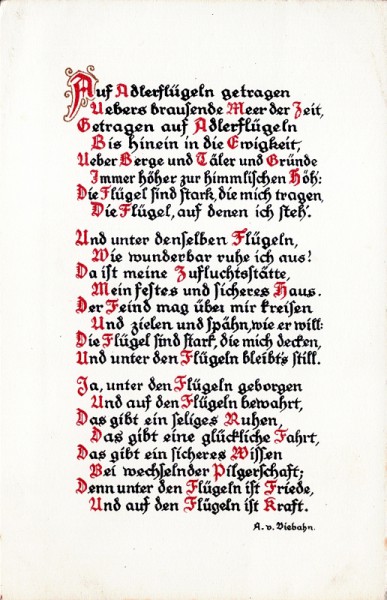 Auf Adlerflügeln getragen
Uebers brausende Meer der Zeit,
Getragen auf Adlerflügeln
Bis hinein in die Ewigkeit,
Ueber Berge und Täler und Gründe
Immer höher zur himmlischen Höh:
Die Flügel sind stark, die mich tragen,
Die Flügel, auf denen ich steh'.
Und unter denselben Flügeln,
Wie wunderbar ruhe ich aus!
Da ist meine Zufluchtsstätte,
Mein festes und sicheres Haus.
Der Feind mag über mir kreisen
Und zielen und spähn, wie er will:
Die Flügel sind stark, die mich decken,
Und unter den Flügeln bleibts still.
Ja, unter den Flügeln geborgen
Und auf den Flügeln bewahrt,
Das gibt ein seliges Ruhen,
Das gibt eine glückliche Fahrt,
Das gibt ein sicheres Wissen
Bei wechselnder Pilgerschaft;
Denn unter den Flügeln ist Friede,
Und auf den Flügeln ist Kraft.
A. v. Viebahn.